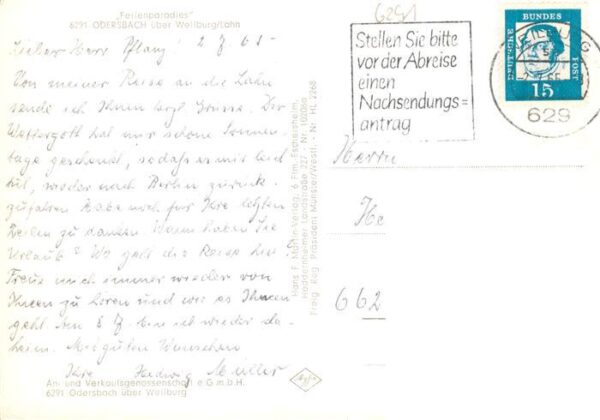 "Ferienparadies"
6291 ODERSBACH über Weilburg/Lahn
Lieber Herr Pflanz! 2 7 65-
Von meiner Reise an die Lahn
sende ich Ihnen herzl Grüsse. Der
Wettergott hat mir schöne Sonnen-
tage geschenkt, sodass es mir leid
tut, wieder nach Berlin zurück-
zufahren Habe noch für Ihre letzten
Zeilen zu danken. Wann haben Sie
Urlaub? Wo geht die Reise hin
Freue mich immer wieder von
Ihnen zu hören und wie es Ihnen
geht Am 8 7. bin ich wieder da-
heim. Mit guten Wünschen
Ihre Hedwig Müller
An- und Verkaufsgenossenschaft e G m b H.
6291 Odersbach über Weilburg
Hans F. Martin-Verlag, 6 Ffm.-Eschersheim,
Haddernheimer Landstraße 27 - Nr. 1003/60
Freig. Reg. Präsident Münster/Westf. - Nr. HL 2268
6291
Stellen Sie bitte
vor der Abreise
einen
Nachsendungs=
antrag
DEUTSCHE BUNDES POST
15
WEILBURG
629
Herrn
He
662
Agfa